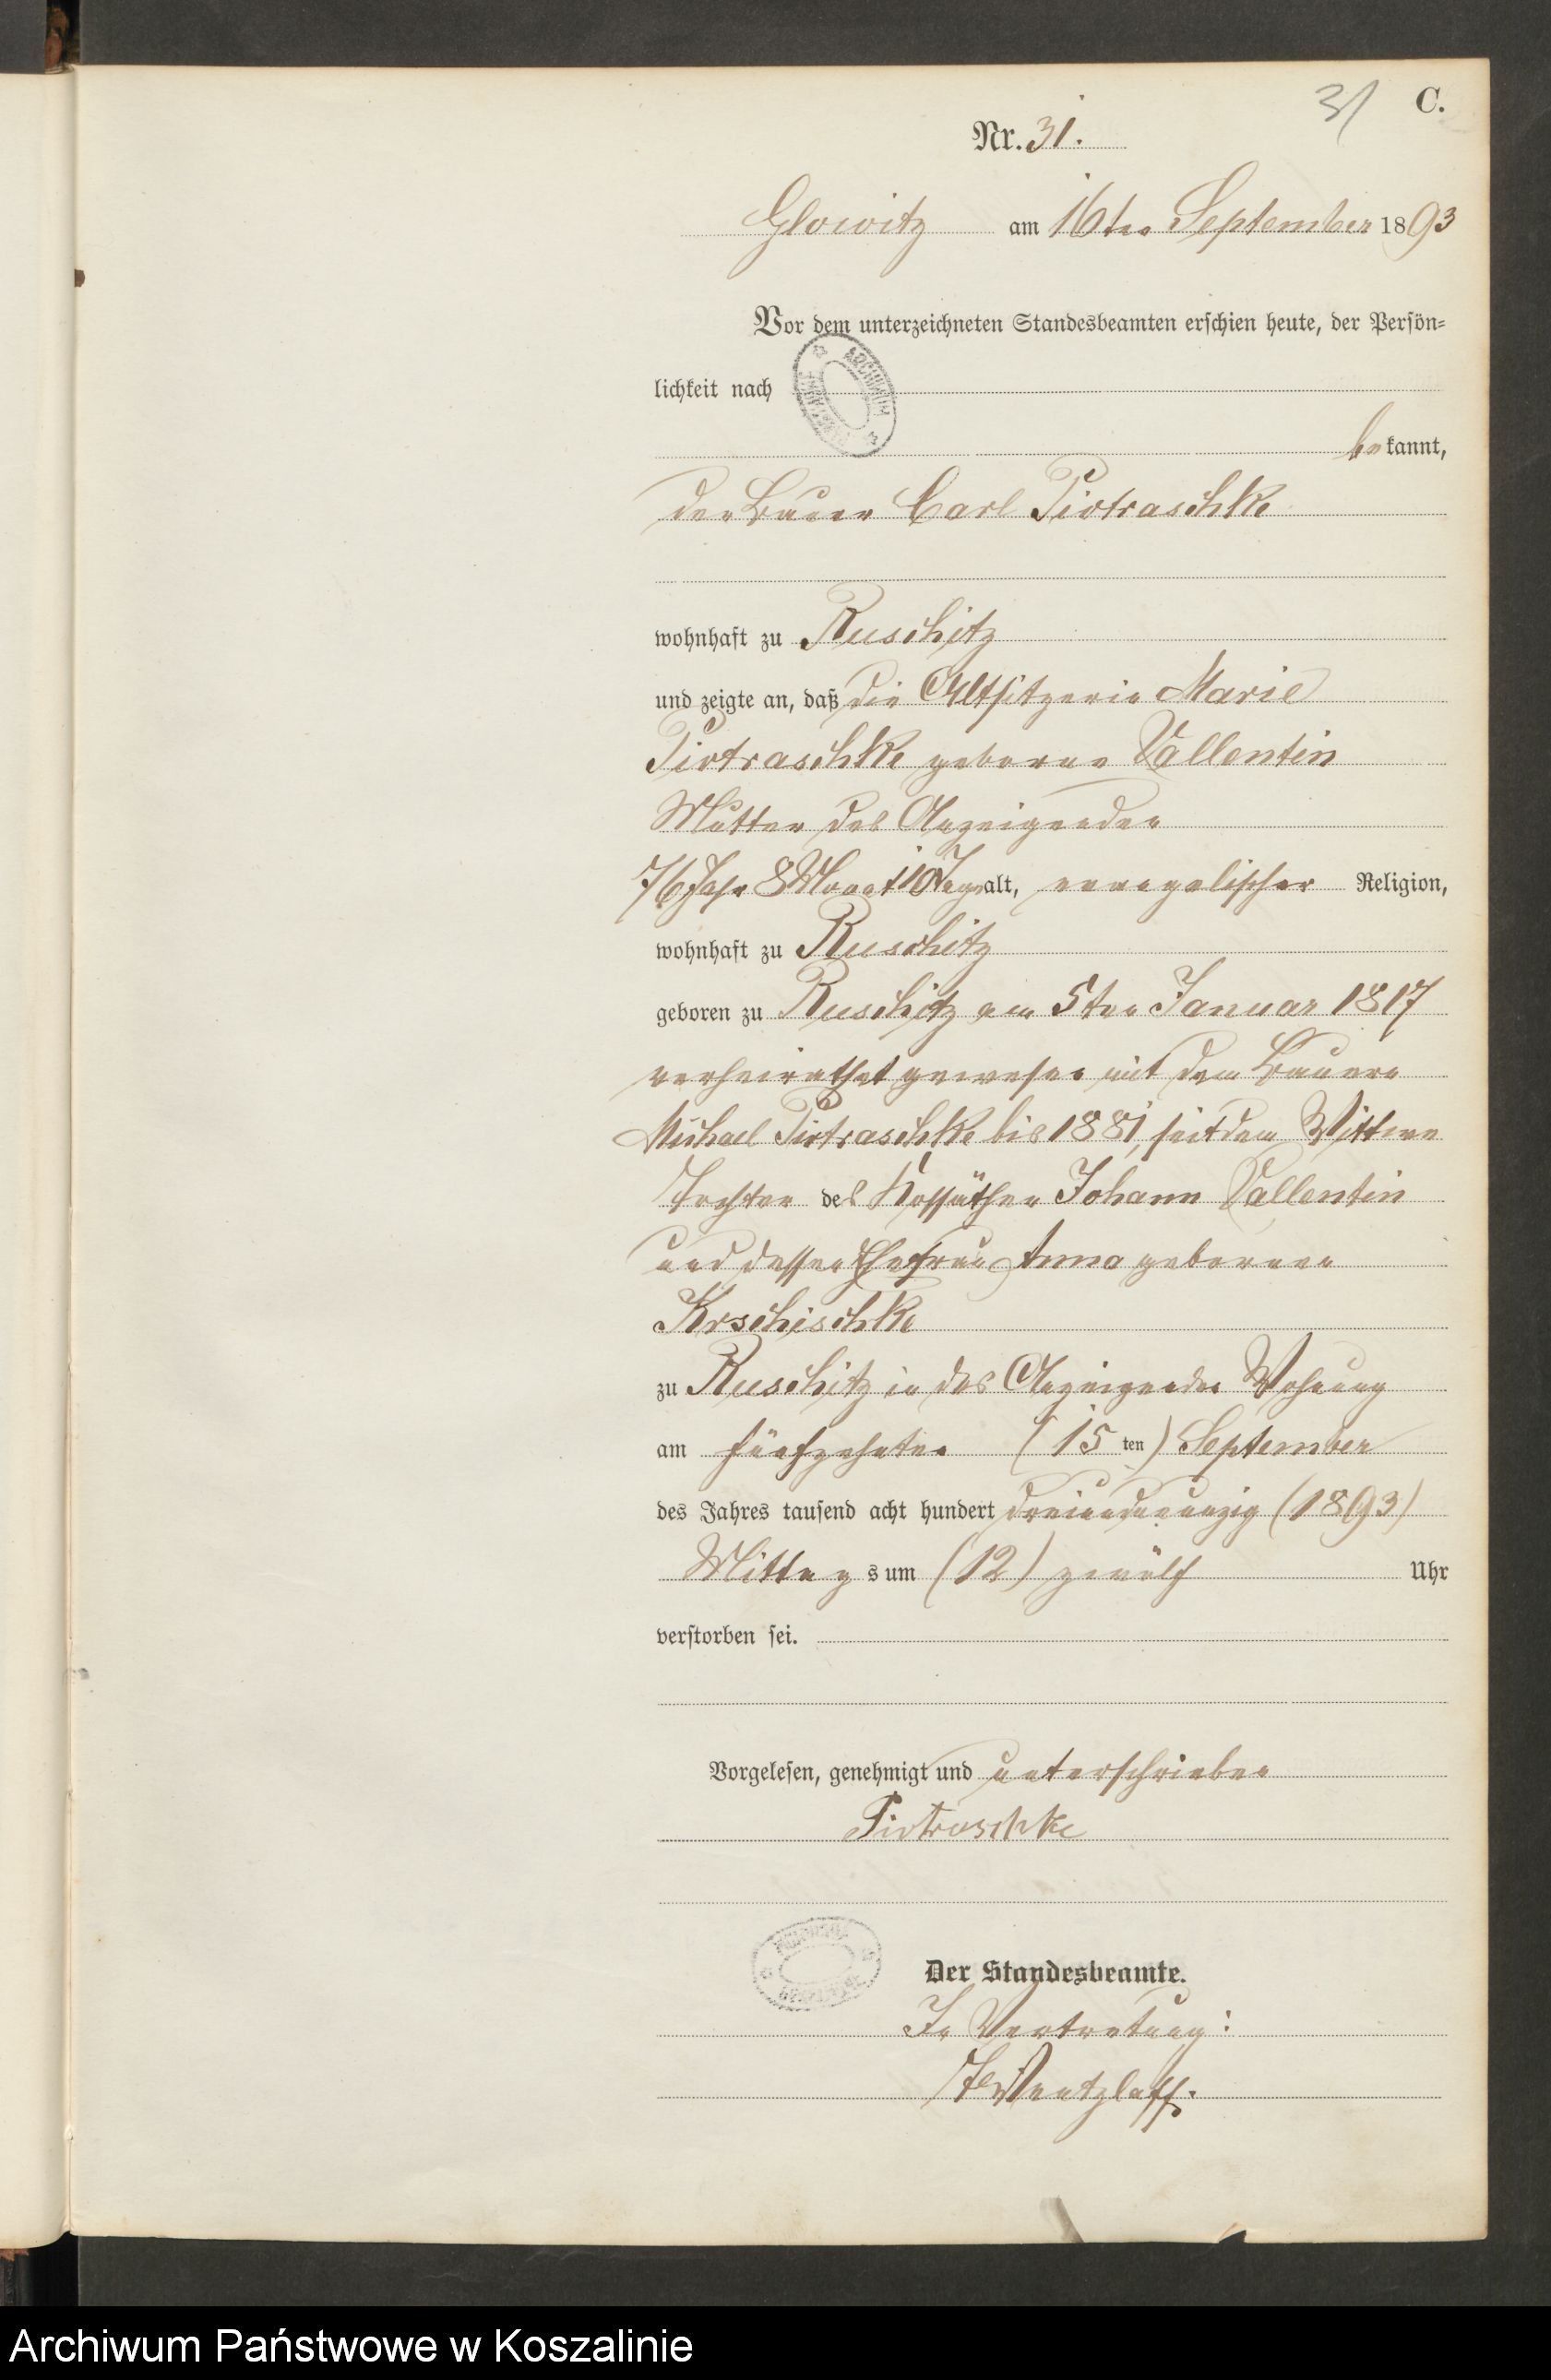 31 C.
Nr. 31.
Glowitz am 16ten September 1893
Vor dem unterzeichneten Standesbeamten erschien heute, der Persön-
lichkeit nach
ARCHIWUM
bekannt,
der Bauer Carl Piotraschke
wohnhaft zu Ruschitz
und zeigte an, daß die Altsitzerin Marie
Piotraschke geborne Vallentin
Mutter des Anzeigenden
76 Jahr 8 Monat 10 Tage alt, evangelischer Religion,
wohnhaft zu Ruschitz
geboren zu Ruschitz am 5ten Januar 1817
verheirathet gewesen mit dem Bauern
Michael Piotraschke bis 1881, seitdem Wittwe
Tochter des Kossäthen Johann Vallentin
und dessen Ehefrau Anna gebornen
Krschischke
zu Ruschitz in des Anzeigenden Wohnung
am fünfzehnten (15 ten) September
des Jahres tausend acht hundert dreiundneunzig (1893)
Mittags um (12) zwölf Uhr
verstorben sei.
Vorgelesen, genehmigt und unterschrieben
Piotraschke
Der Standesbeamte.
In Vertretung:
Wentzlaff.
Archiwum Państwowe w Koszalinie